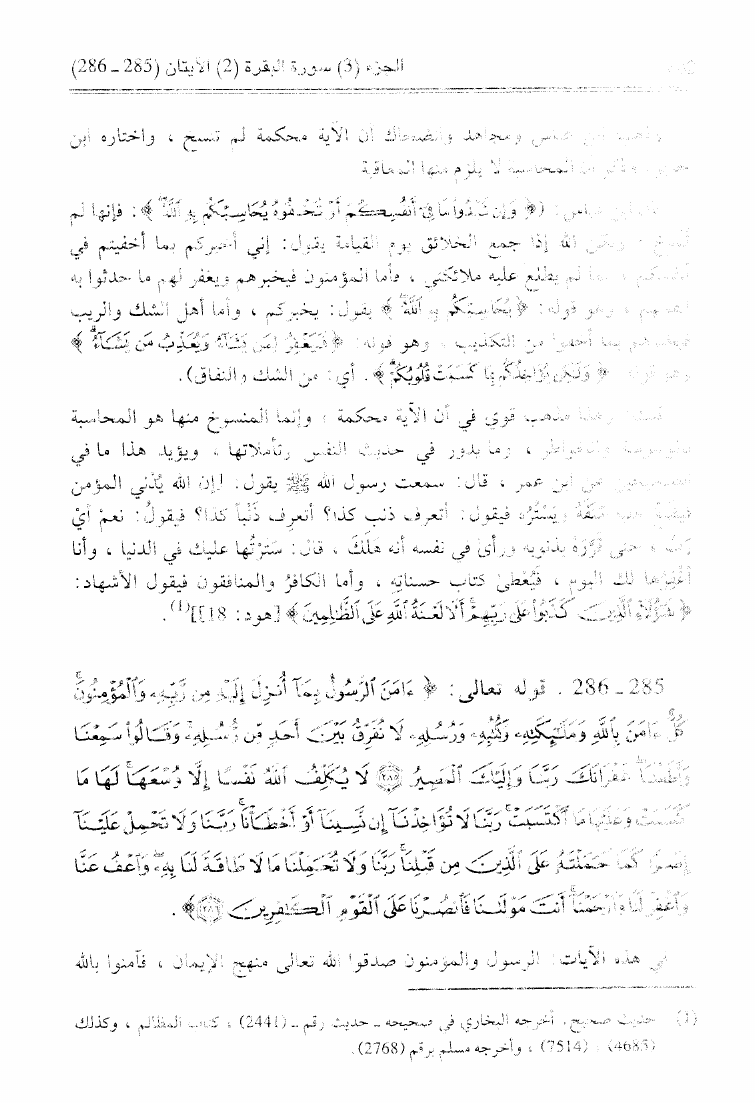 الجزء (3) سورة البقرة (2) الآيتان (285 ـ 286)
ومجاهد والضحاك أن الآية محكمة لم تنسخ ، واختاره ابن
المحاسبة لا يلزم منها المعاقبة
ابن عباس: (﴿ وَإِن تُبْدُوا مَا فِي أَنفُسِكُمْ أَوْ تُخْفُوهُ يُحَاسِبْكُم بِهِ اللَّهُ ﴾: فإنها لم
الله إذا جمع الخلائق يوم القيامة يقول: إني أخبركم بما أخفيتم في
لم يطلع عليه ملائكتي ، فأما المؤمنون فيخبرهم ويغفر لهم ما حدثوا به
وهو قوله: ﴿ يُحَاسِبْكُم بِهِ اللَّهُ ﴾ يقول: يخبركم ، وأما أهل الشك والريب
بما أخفوا من التكذيب ، وهو قوله: ﴿ فَيَغْفِرُ لِمَن يَشَاءُ وَيُعَذِّبُ مَن يَشَاءُ ﴾
﴿ وَلَٰكِن يُؤَاخِذُكُم بِمَا كَسَبَتْ قُلُوبُكُمْ ﴾. أي: من الشك والنفاق).
وهذا مذهب قوي في أن الآية محكمة ، وإنما المنسوخ منها هو المحاسبة
والخواطر ، وما يدور في حديث النفس وتأملاتها ، ويؤيد هذا ما في
عن ابن عمر ، قال: سمعت رسول الله ﷺ يقول: [إن الله يُدْني المؤمن
كَنَفَهُ ويَسْتُرُه فيقول: أتعرف ذنب كذا؟ أتعرف ذَنْبَ كذا؟ فيقولُ: نعمْ أيْ
حتى قَرَّرَهُ بذنوبه ورأى في نفسه أنه هَلَكَ ، قال: سَتَرْتُها عليك في الدنيا ، وأنا
أغْفِرُها لك اليوم ، فَيُعْطىٰ كتابَ حسناتِه ، وأما الكافرُ والمنافقون فيقول الأشهاد:
﴿ هَٰؤُلَاءِ الَّذِينَ كَذَبُوا عَلَىٰ رَبِّهِمْ أَلَا لَعْنَةُ اللَّهِ عَلَى الظَّالِمِينَ ﴾ [هود: 18]](1).
285 ـ 286 . قوله تعالى: ﴿ ءَامَنَ الرَّسُولُ بِمَا أُنزِلَ إِلَيْهِ مِن رَّبِّهِ وَالْمُؤْمِنُونَ
كُلٌّ ءَامَنَ بِاللَّهِ وَمَلَائِكَتِهِ وَكُتُبِهِ وَرُسُلِهِ لَا نُفَرِّقُ بَيْنَ أَحَدٍ مِّن رُّسُلِهِ وَقَالُوا سَمِعْنَا
وَأَطَعْنَا غُفْرَانَكَ رَبَّنَا وَإِلَيْكَ الْمَصِيرُ ﴿٢٨٥﴾ لَا يُكَلِّفُ اللَّهُ نَفْسًا إِلَّا وُسْعَهَا لَهَا مَا
كَسَبَتْ وَعَلَيْهَا مَا اكْتَسَبَتْ رَبَّنَا لَا تُؤَاخِذْنَا إِن نَّسِينَا أَوْ أَخْطَأْنَا رَبَّنَا وَلَا تَحْمِلْ عَلَيْنَا
إِصْرًا كَمَا حَمَلْتَهُ عَلَى الَّذِينَ مِن قَبْلِنَا رَبَّنَا وَلَا تُحَمِّلْنَا مَا لَا طَاقَةَ لَنَا بِهِ وَاعْفُ عَنَّا
وَاغْفِرْ لَنَا وَارْحَمْنَا أَنتَ مَوْلَانَا فَانصُرْنَا عَلَى الْقَوْمِ الْكَافِرِينَ ﴿٢٨٦﴾ ﴾ .
في هذه الآيات: الرسول والمؤمنون صدقوا الله تعالى منهج الإيمان ، فآمنوا بالله
(1) حديث صحيح. أخرجه البخاري في صحيحه ـ حديث رقم ـ (2441) ، كتاب المظالم ، وكذلك
(4685) ، (7514) ، وأخرجه مسلم برقم (2768).